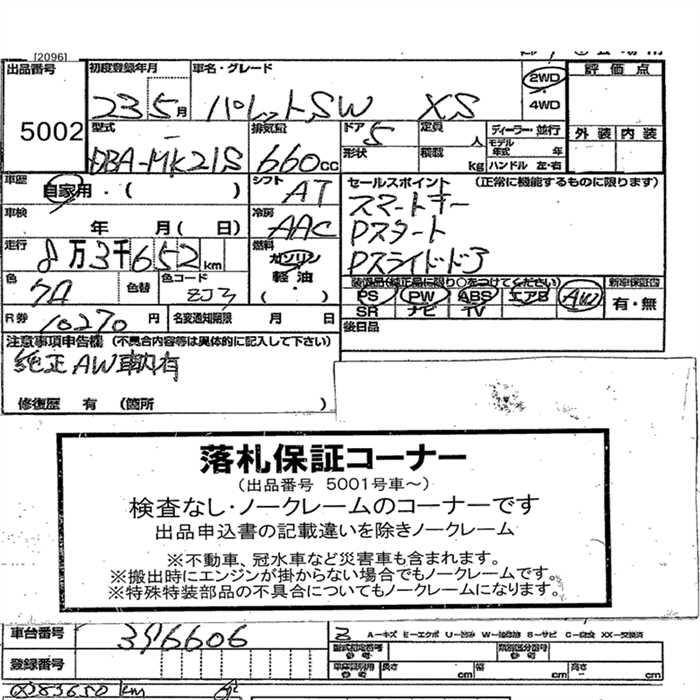 [2096]
出品番号 初度登録年月 車名・グレード 2WD 評価点
5002 23 5月 パレットSW XS 4WD
型式 排気量 ドア 定員 ディーラー・並行 外装 内装
DBA-MK21S 660cc 5 人 モデル年式 年
形状 積載 kg ハンドル 左・右
車歴 自家用・( ) シフト AT セールスポイント (正常に機能するものに限ります)
車検 年 月( 日) 冷房 AAC スマートキー
Pスタート
走行 8万3千652km 燃料 ガソリン 軽油 ・( ) Pスライドドア
色 色替 色コード ZJ3 装備品(純正品に限り○をつけてください) 新車保証書
PS PW ABS エアB AW 有・無
SR ナビ TV
R券 10270円 名変通知期限 月 日 後日品
注意事項申告欄 (不具合内容等は具体的に記入して下さい)
純正AW車内有
修復歴 有 (箇所 )
落札保証コーナー
(出品番号 5001号車~)
検査なし・ノークレームのコーナーです
出品申込書の記載違いを除きノークレーム
※不動車、冠水車など災害車も含まれます。
※搬出時にエンジンが掛からない場合でもノークレームです。
※特殊特装部品の不具合についてもノークレームになります。
車台番号 396606
A-キズ E-エクボ U-凹み W-補修跡 S-サビ C-腐食 XX-交換済
型式指定番号 類別区分番号
登録番号 長さ cm 幅 cm 高さ cm
83650 km